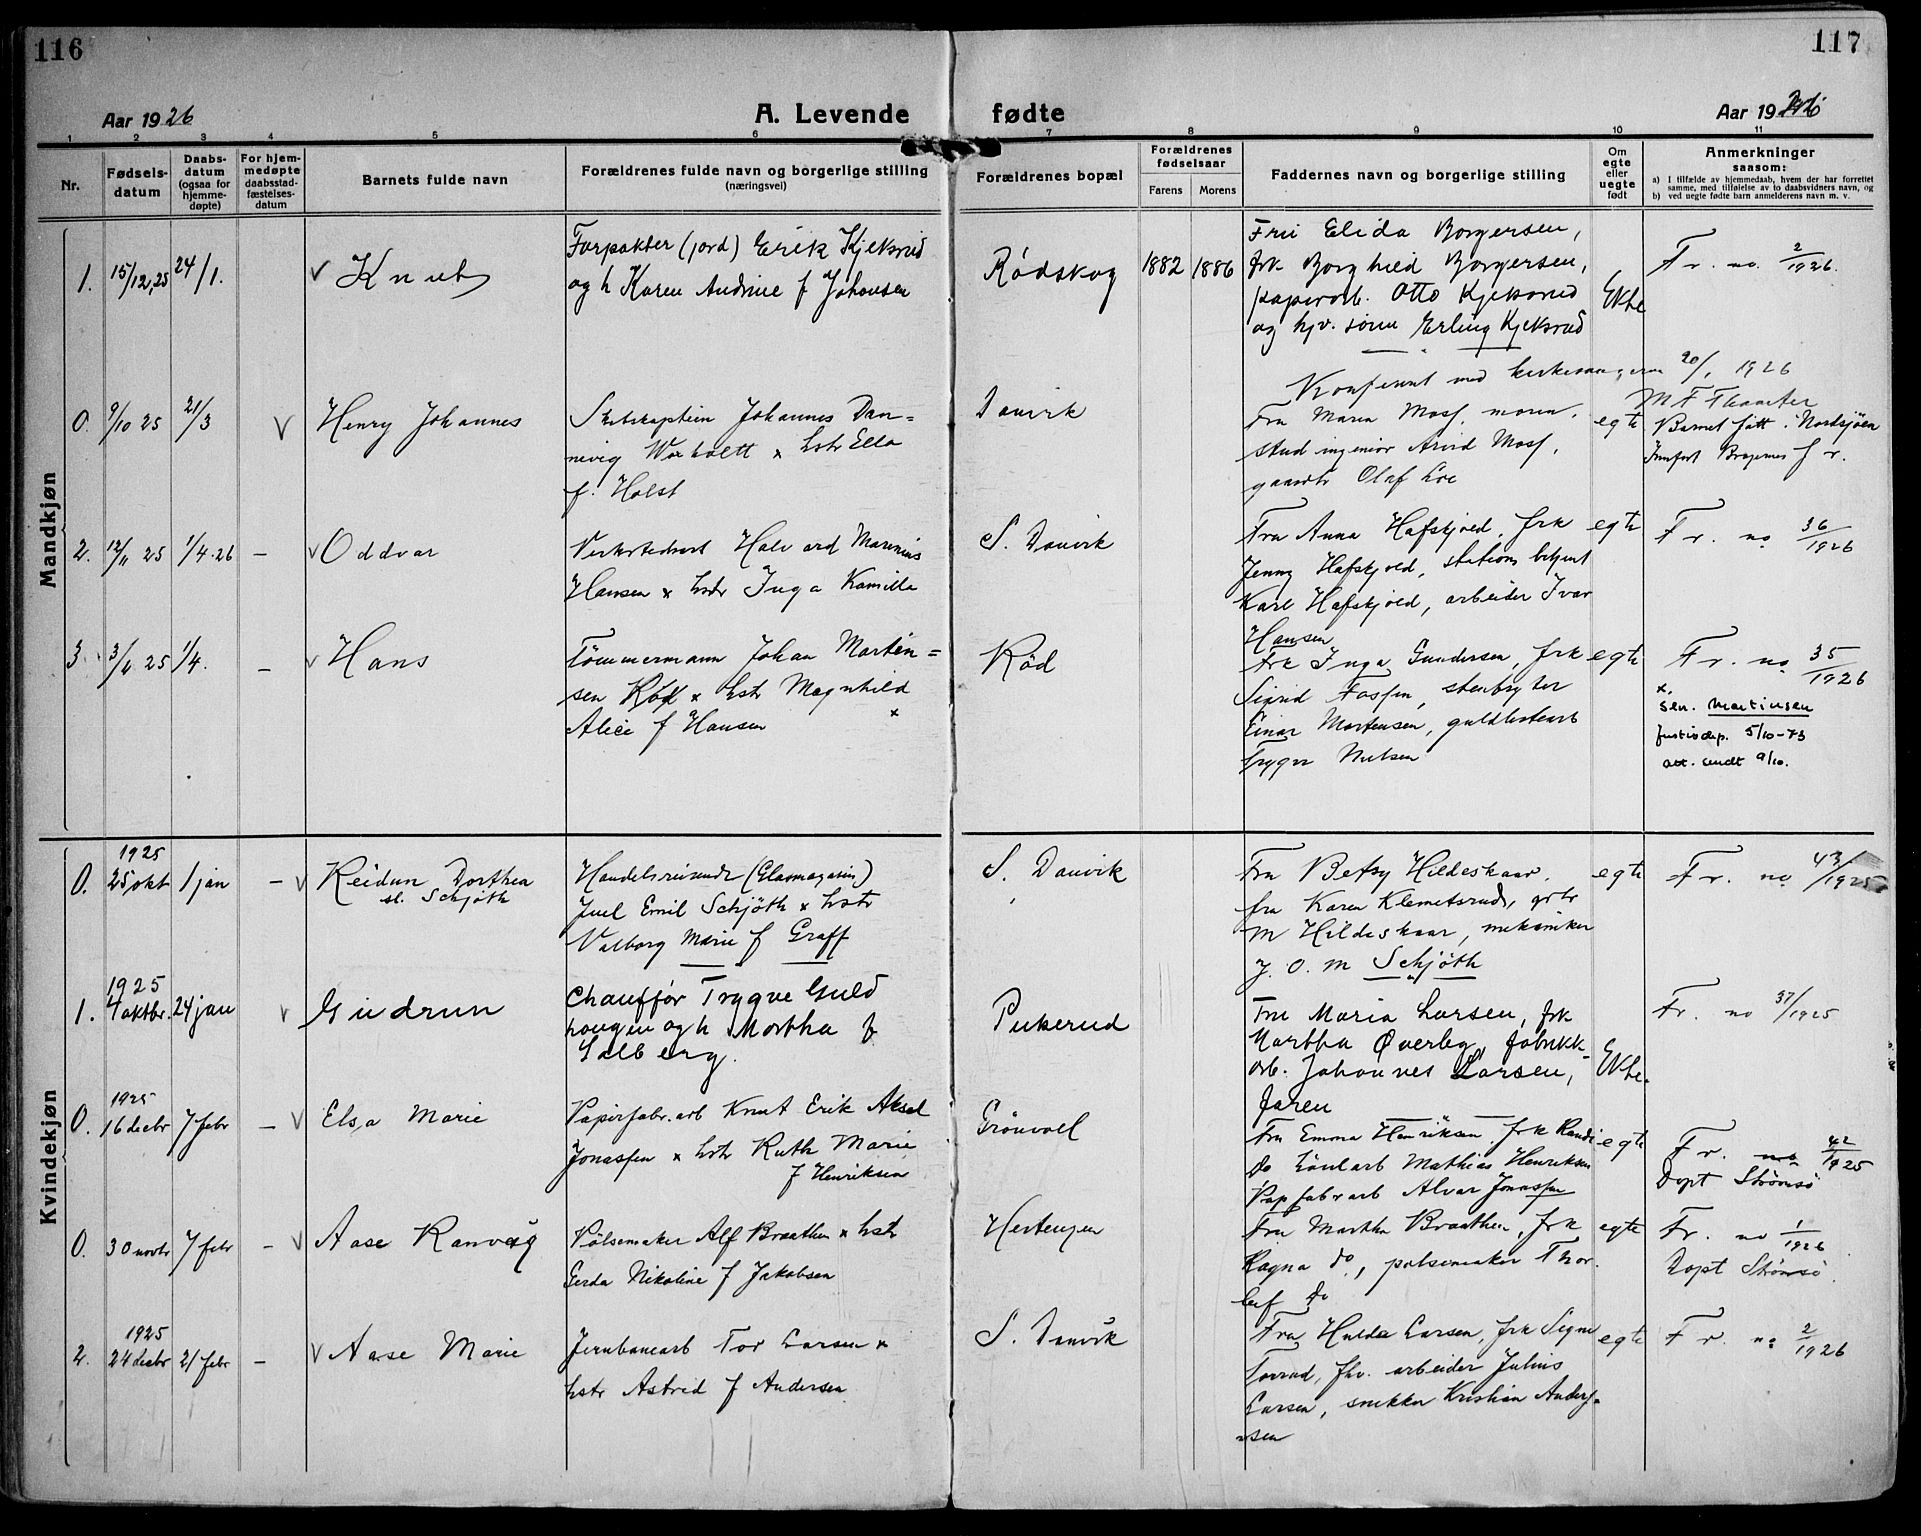 116
117
Aar 1926
A. Levende fødte
Aar 1926
1 2 3 4 5 6 7 8 9 10 11
Nr.
Fødselsdatum
Daabsdatum (ogsaa for hjemmedøpte)
For hjemmedøpte daabsstadfæstelsesdatum
Barnets fulde navn
Forældrenes fulde navn og borgerlige stilling
(næringsvei)
Forældrenes bopæl
Forældrenes fødselsaar
Farens Morens
Faddernes navn og borgerlige stilling
Om egte eller uegte født
Anmerkninger saasom:
a) I tilfælde av hjemmedaab, hvem der har forrettet samme, med tilføielse av to daabsvidners navn, og
b) ved uegte fødte barn anmelderens navn m. v.
Mandkjøn
1. 15/12,25 24/1. V Knut
Forpakter (jord) Erik Kjeksrud
og h Karen Andrine f Johansen
Rødskog 1882 1886
Fru Elida Borgersen,
frk. Borghild Borgersen,
papirarb. Otto Kjeksrud
og hjv. sønn Erling Kjeksrud
Ekte
Fr. no. 2/1926.
Konferert med kirkesangeren 20/1 1926
0. 9/10 25 21/3 V Henry Johannes
Skibskaptein Johannes Dan=
nevig Warholtt x hstr Ella
f. Holst
Danvik
Fru Maren Moss,
stud ingeniør Arvid Moss,
gaardbr Olaf Loe
egte
Barnet født i Nordsjøen
Innført Bragernes f r.
2. 12/11 25 1/4.26 — V Oddvar
Verkstedarb Halvard Marinius
Hansen x hstr Inga Kamilla
S. Danvik
Fru Anna Hafskjold, frk
Jenny Hafskjold, stations betjent
Karl Hafskjold, arbeider Ivar
Hansen
egte
Fr. no 36/1926
3. 25 1/4. — V Hans
Tömmermann Johan Martin=
sen Röd x hstr Magnhild
Alice f Hansen x
Röd
Frk Inga Gundersen, frk
Sigrid Fossen, stenbryter
Einar Mortensen, guldlistearb
Trygve Nielsen
egte
Fr. no 35/1926
x. sen. Martinsen
justisdep. 5/10-73
att. sendt 9/10.
Kvindekjøn
0. 1925 25 okt 1 jan — V Reidun Dorthea
sl. Schjøth
Handelsreisende (Glasmagasin)
Juel Emil Schjöth x hstr
Valborg Marie f Graff
S. Danvik
Fru Betsy Hildeskaar,
fru Karen Klemetsrud, grbr
M Hildeskaar, mekaniker
J. O. M Schjöth
egte
Fr. no 43/1925
1. 1925 4 oktbr. 24 jan V Gudrun
Chauffør Trygve Guld
haugen og h Martha f
Solberg.
Pukerud
Fru Maria Larsen, frk
Martha Øverby, fabrikk-
arb. Johannes Larsen,
faren
Ekte.
Fr. no 37/1925
0. 1925 16 decbr 7 febr — V Elsa Marie
Papirfabr. arb Knut Erik Aksel
Jonassen x hstr Ruth Marie
f Henriksen
Grönvoll
Fru Emma Henriksen, frk Randi
do Mathias Henriksen
Papfabrarb Alvar Jonassen
egte
Fr. no 42/1925
Döpt Strömsö
0. 30 novbr 7 febr — V Aase Ranveig
Pölsemaker Alf Braathen x hstr
Gerda Nikoline f Jakobsen
Hestengen
Fru Martha Braathen, frk
Ragna do, pölsemaker Thor
leif do
egte
Fr. no 1/1926
Döpt Strömsö.
2. 1925 24 decbr 21 febr — V Aase Marie
Jernbanearb Tor Larsen x
hstr Astrid f Andersen
S. Danvik
Fru Hulda Larsen, frk Signe
Torrud, fhv. arbeider Julius
Larsen, snekker Kristian Anders=
sen
egte
Fr. no 2/1926